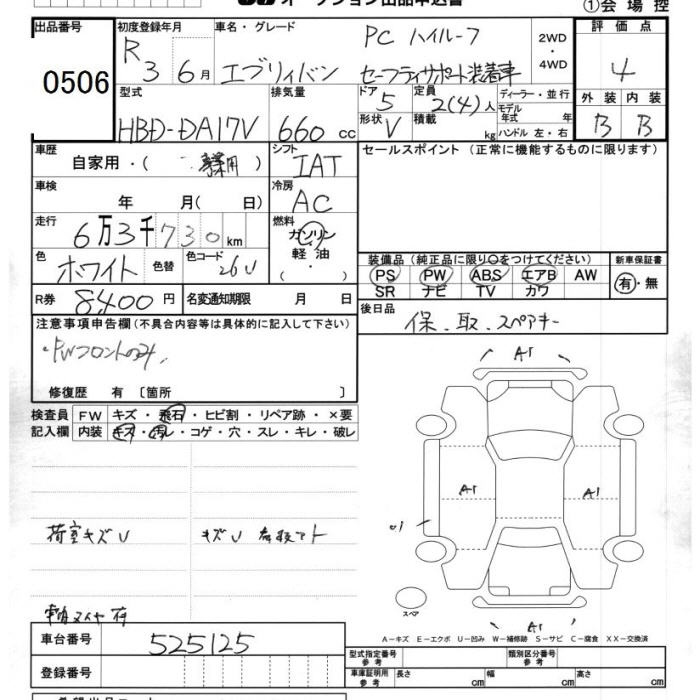 オークション出品申込書
①会場控
出品番号 0506
初度登録年月 R 3 6月
車名・グレード エブリィバン PC ハイルーフ セーフティサポート装着車
2WD・4WD
評価点 4
外装 B 内装 B
型式 HBD-DA17V
排気量 660 cc
ドア 5 定員 2(4)人
形状 V 積載 kg
ディーラー・並行
モデル年式 年
ハンドル 左・右
車歴 自家用・( 事業用)
シフト IAT
セールスポイント(正常に機能するものに限ります)
車検 年 月( 日)
冷房 AC
走行 6万3千730km
燃料 ガソリン 軽油 ( ・ )
色 ホワイト 色替 色コード 26U
装備品(純正品に限り○をつけてください)
新車保証書
PS PW ABS エアB AW
有・無
SR ナビ TV カワ
R券 8,400円 名変通知期限 月 日
後日品 保.取.スペアキー
注意事項申告欄(不具合内容等は具体的に記入して下さい)
・PWフロントのみ
修復歴 有 〔箇所 〕
検査員記入欄
FW キズ・飛石・ヒビ割・リペア跡・×要
内装 キズ・汚レ・コゲ・穴・スレ・キレ・破レ
A1
A1
A1
A1
荷室キズU
キズU
スペア
A-キズ E-エクボ U-凹み W-補修跡 S-サビ C-腐食 XX-交換済
車台番号 525125
登録番号
型式指定番号 参考
類別区分番号 参考
車庫証明用 参考 長さ cm 幅 cm 高さ cm